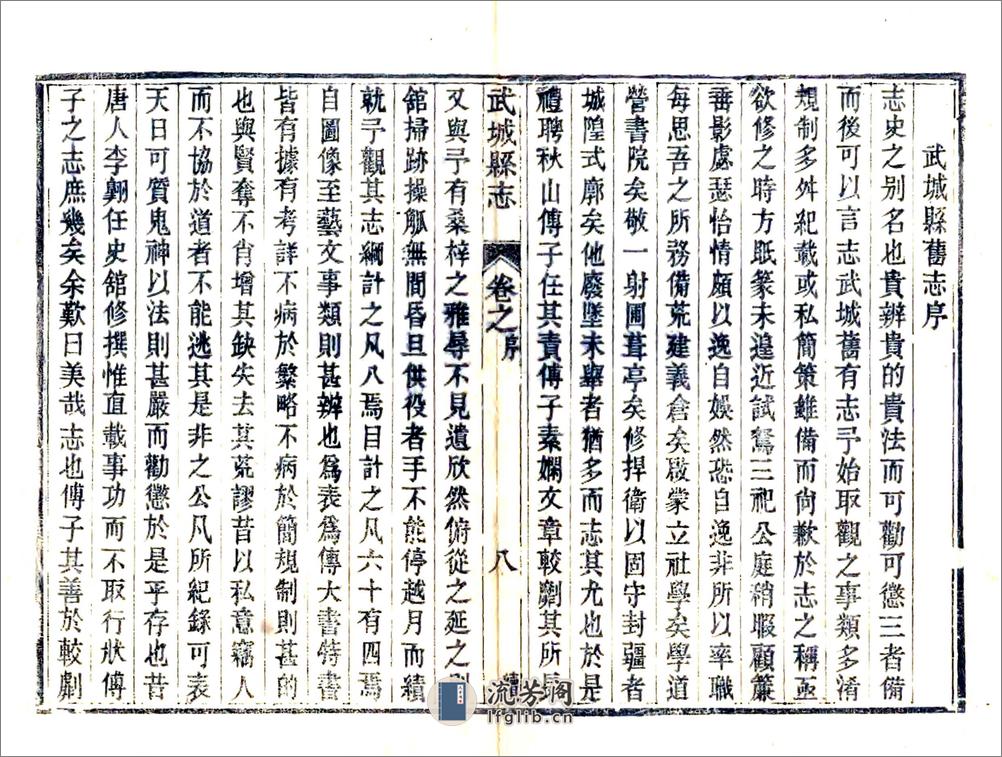 武城縣舊志序
志史之别名也貴辨貴的貴法而可勸可懲三者備
而後可以言志武城舊有志予始取觀之事類多淆
規制多舛紀載或私簡策雖備而尚歉於志之稱亟
欲修之時方眂篆未遑近試駑三祀公庭稍暇顧簾
番影處瑟怡情頗以逸自娛然恐自逸非所以率職
每思吾之所務備荒建義倉矣啟蒙立社學矣學道
營書院矣敬一射圃葺亭矣修捍衛以固守封疆者
城隍式廓矣他廢墜未舉者猶多而志其尤也於是
禮聘秋山傅子任其責傅子素嫻文章較劘其所長
武城縣志
卷之序
八
續
又與予有桑梓之雅辱不見遺欣然俯從之延之
舘掃跡操觚無間昏旦供役者手不能停越月而績
就予觀其志綱計之凡八焉目計之凡六十有四焉
自圖像至藝文事類則甚辨也為表為傳大書特書
皆有據有考詳不病於繁略不病於簡規制則甚的
也與賢奪不肖增其缺失去其荒謬昔以私意竊人
而不協於道者不能逃其是非之公凡所紀錄可表
天日可質鬼神以法則甚嚴而勸懲於是乎存也昔
唐人李翺任史舘修撰惟直載事功而不取行狀傳
子之志庶幾矣余歎曰美哉志也傅子其善於較劘
流芳閣
lfglib.cn